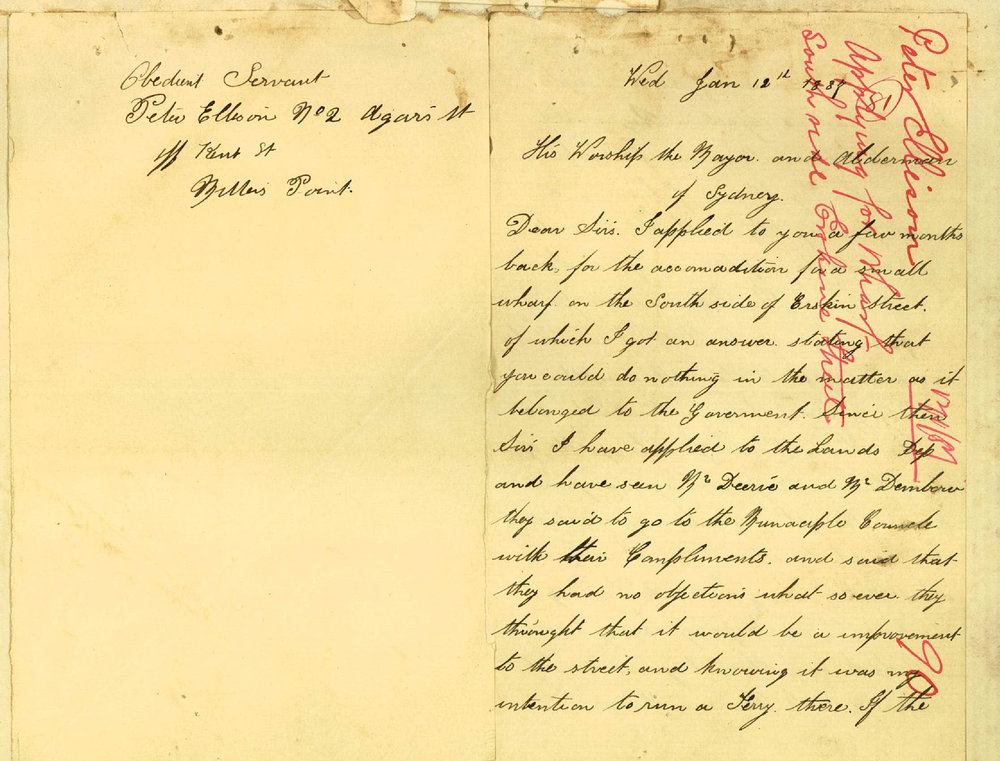 Obedient Servant
Peter Ellison No 2 Agars St
off Kent St
Millers Point.
Wed Jan 12th 1887
His Worship the Mayor. and Alderman
of Sydney.
Dear Sirs. I applied to you a few months
back, for the accomadition for a small
wharf. on the South side of Erskin Street.
of which I got an answer. stating that
you could do nothing in the matter as it
belonged to the Goverment. Since then
Sirs I have applied to the Lands Dep
and have seen Mr Deerie and Mr Dembow
they said to go to the Municiple Councle
with their Compliments. and said that
they had no objections what so ever. they
throught that it would be a improvement
to the street, and knowing it was my
intention to run a Ferry. there. If the
Peter Ellison
Applying for Wharf
South side Erskine Street
90